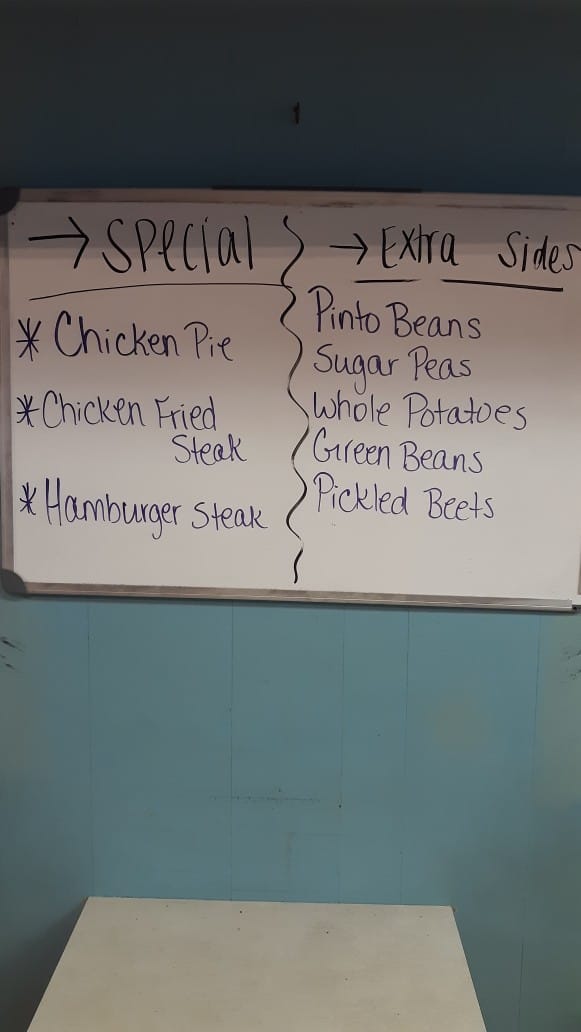 → Special
* Chicken Pie
* Chicken Fried
Steak
* Hamburger Steak
→ Extra Sides
Pinto Beans
Sugar Peas
Whole Potatoes
Green Beans
Pickled Beets